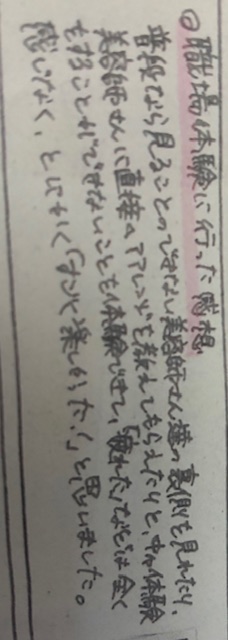 ◎職場体験に行った感想
普段なら見ることのできない美容師さん達の裏側を見れたり、
美容師さんに直接ヘアアレンジを教えてもらえたりと、中々体験
をすることができないことを体験できて、「疲れた」などは全く
感じなく、とにかく「すごく楽しかった!」と思いました。